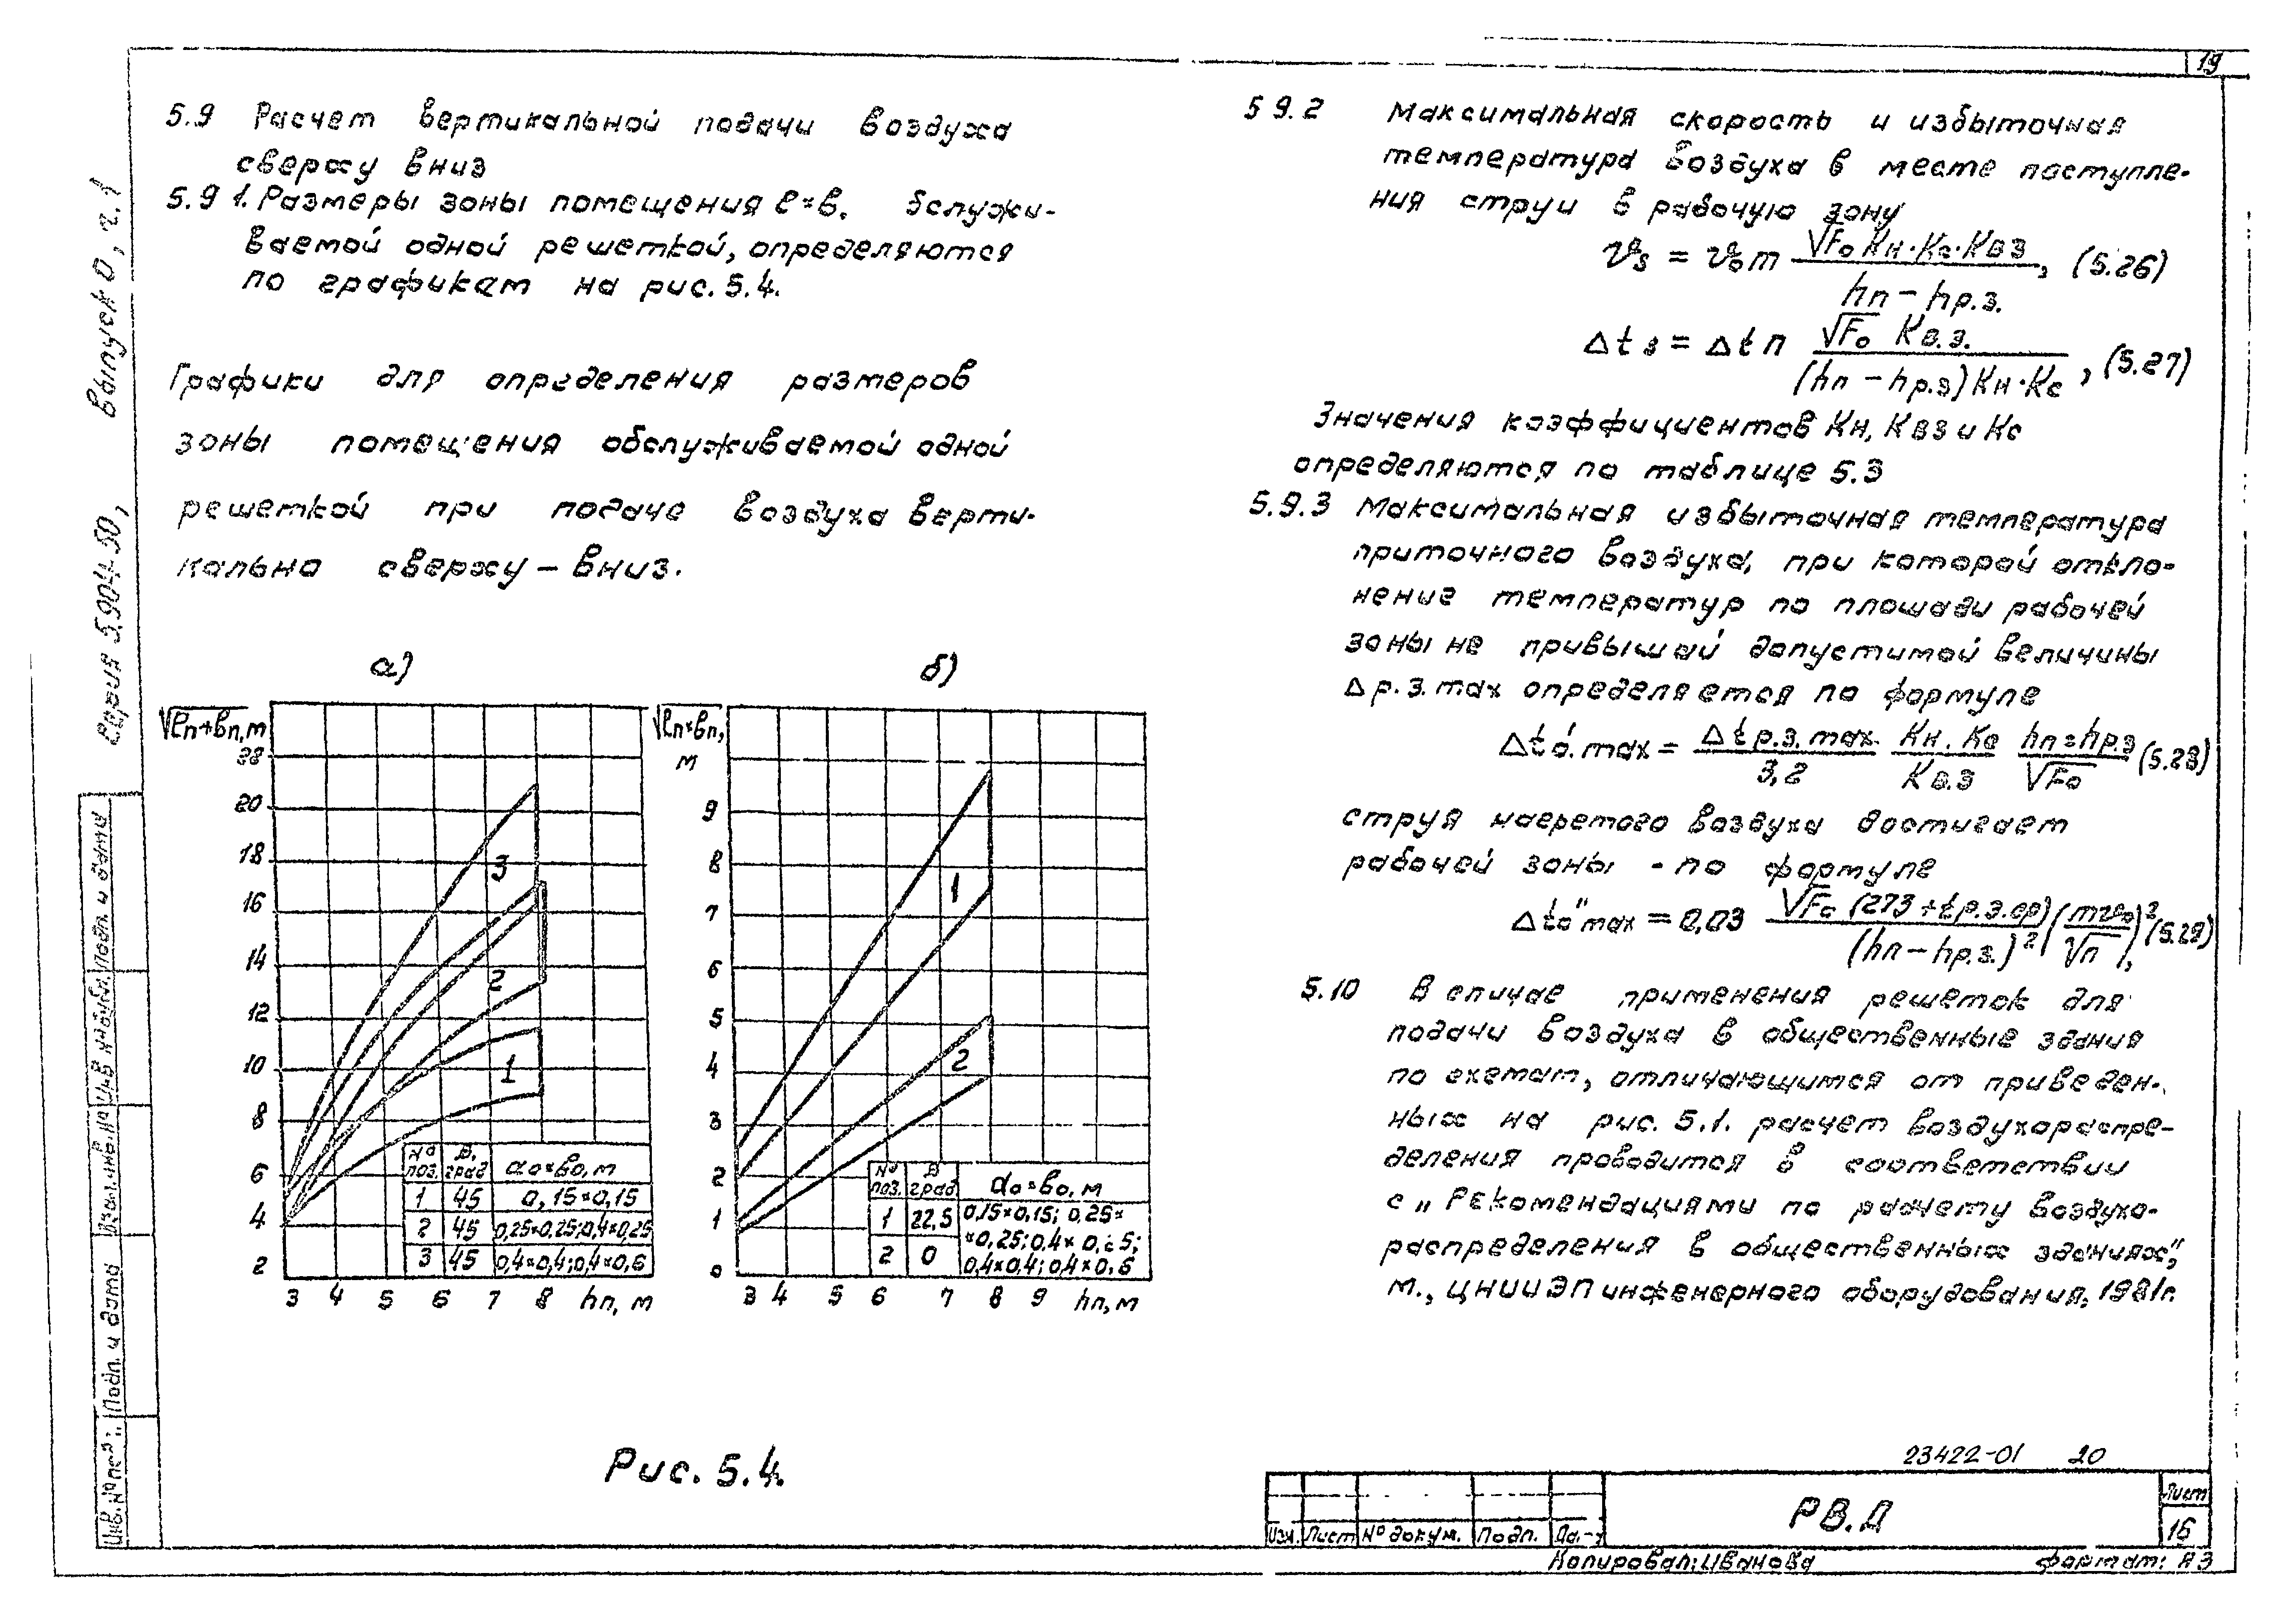 19
5.9 Расчет вертикальной подачи воздуха
сверху вниз
5.9 1. Размеры зоны помещения ℓ×в. бслужи-
ваемой одной решеткой, определяются
по графикам на рис. 5.4.
Графики для определения размеров
зоны помещения обслуживаемой одной
решеткой при подаче воздуха верти-
кально сверху – вниз.
а)
√ℓп+вп, м
20
18
16
14
12
10
8
6
4
2
3
2
1
№ поз. β, град aо×во, м
1 45 0,15×0,15
2 45 0,25×0,25; 0,4×0,25
3 45 0,4×0,4; 0,4×0,6
3 4 5 6 7 8 hп, м
б)
√ℓп×вп,
м
9
8
7
6
5
4
3
2
1
0
1
2
№ поз. β град aо×во, м
1 22,5 0,15×0,15; 0,25×
×0,25; 0,4× 0,25;
2 0 0,4×0,4; 0,4×0,6
3 4 5 6 7 8 9 hп, м
Рис. 5.4.
5 9.2 Максимальная скорость и избыточная
температура воздуха в месте поступле-
ния струи в рабочую зону
𝒱з = 𝒱оm √Fо Кн·Кс·Квз / hп – hр.з. , (5.26)
Δtз = Δt n √Fо Кв.з. / (hп – hр.з) Кн·Кс , (5.27)
Значения коэффициентов Кн, Квз и Кс
определяются по таблице 5.3
5.9.3 Максимальная избыточная температура
приточного воздуха, при которой откло-
нение температур по площади рабочей
зоны не привышай допустимой величины
Δ р.з. max определяется по формуле
Δtо'. max = Δt р.з. max. / 3,2 Кн. Кс / Кв.з hп = hр.з / √Fо (5.28)
струя нагретого воздуха достигает
рабочей зоны - по формуле
Δtо" max = 0,03 √Fо (273 + tр.з.ср) / (hп – hр.з.)² (m𝒱о / √n)², (5.29)
5.10 В случае применения решеток для
подачи воздуха в общественные здания
по схемам, отличающимся от приведен-
ных на рис. 5.1. расчет воздухораспре-
деления проводится в соответствии
с „Рекомендациями по расчету воздухо-
распределения в общественных зданиях",
М., ЦНИИЭП инженерного оборудования, 1981г.
23422-01 20
Изм. Лист № докум. Подп.
РВ.Д
Лист
16
Копировал: Иванова
формат: А3
Серия 5.904-50, выпуск 0, ч. 1
Подп. и дата
Инв. № дубл.
Взам. инв. №
Подп. и дата
Инв. № подл.